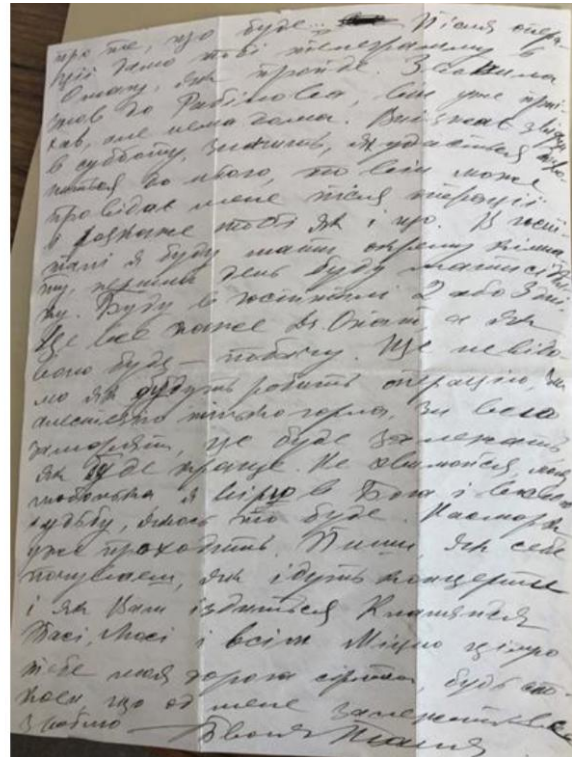 про те, що буде... Після опера-
ції дамо тобі телеграмму в
Омаху, як пройде. Заходила
знов до Рабінова, він уже приї-
хав, але нема дома. Виїзжає
в субботу, значить, як удасться
до нього, то він може
провідає мене після операції
і розкаже тобі як і що. В госпі-
талі я буду мати окрему кімна-
ту, перший день буду мати
ку. Буду в госпіталі 2 або 3 дні.
Це все каже Dr. а як
воно буде — побачу. Ще невідо-
мо як будуть робить операцію, чи
анестезію тільки горла, чи всю
це буде залежать
як буде краще. Не хвилюйся, моя
любонька я вірю в Бога і в свою
судьбу, якось то буде. Насморк
уже проходить. Пиши, як себе
почуваєш, як ідуть концерти
і як Вам їздиться Кланяйся
Тасі, Люсі і всім Міцно цілую
тебе моя дорога, будь спо-
койна що од мене залежить все
зроблю Твоя Таня